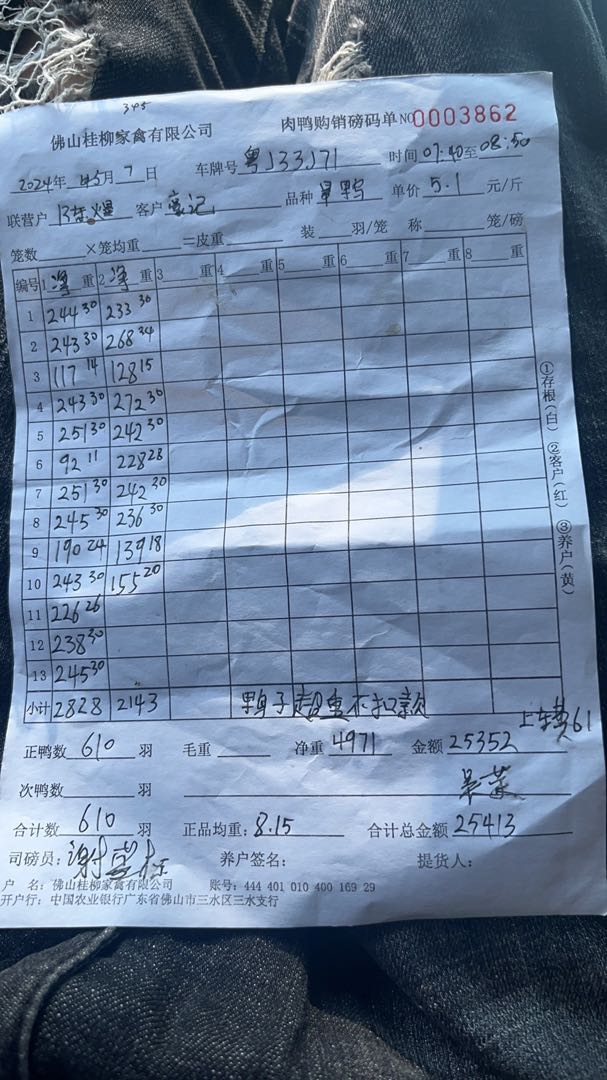 345
佛山桂柳家禽有限公司 肉鸭购销磅码单 NO0003862
2024年 5月 7日 车牌号 粤J33J71 时间 07:40至08:50
联营户 客户 豪记 品种 旱鸭 单价 5.1 元/斤
笼数 ×笼均重 =皮重 装 羽/笼 称 笼/磅
编号 1 净 重 2 净 重 3 重 4 重 5 重 6 重 7 重 8 重
1 244 30 233 30
2 243 30 268 34
3 117 14 128 15
4 243 30 272 30
5 251 30 242 30
6 92 11 228 28
7 251 30 242 30
8 245 30 236 30
9 190 24 139 18
10 243 30 155 20
11 226 26
12 238 30
13 245 30
小计 2828 2143 鸭子超重不扣款
上车费61
正鸭数 610 羽 毛重 净重 4971 金额 25352
次鸭数 羽
合计数 610 羽 正品均重: 8.15 合计总金额 25413
司磅员: 养户签名: 提货人:
户 名: 佛山桂柳家禽有限公司 账号: 444 401 010 400 169 29
开户行: 中国农业银行广东省佛山市三水区三水支行
①存根(白) ②客户(红) ③养户(黄)